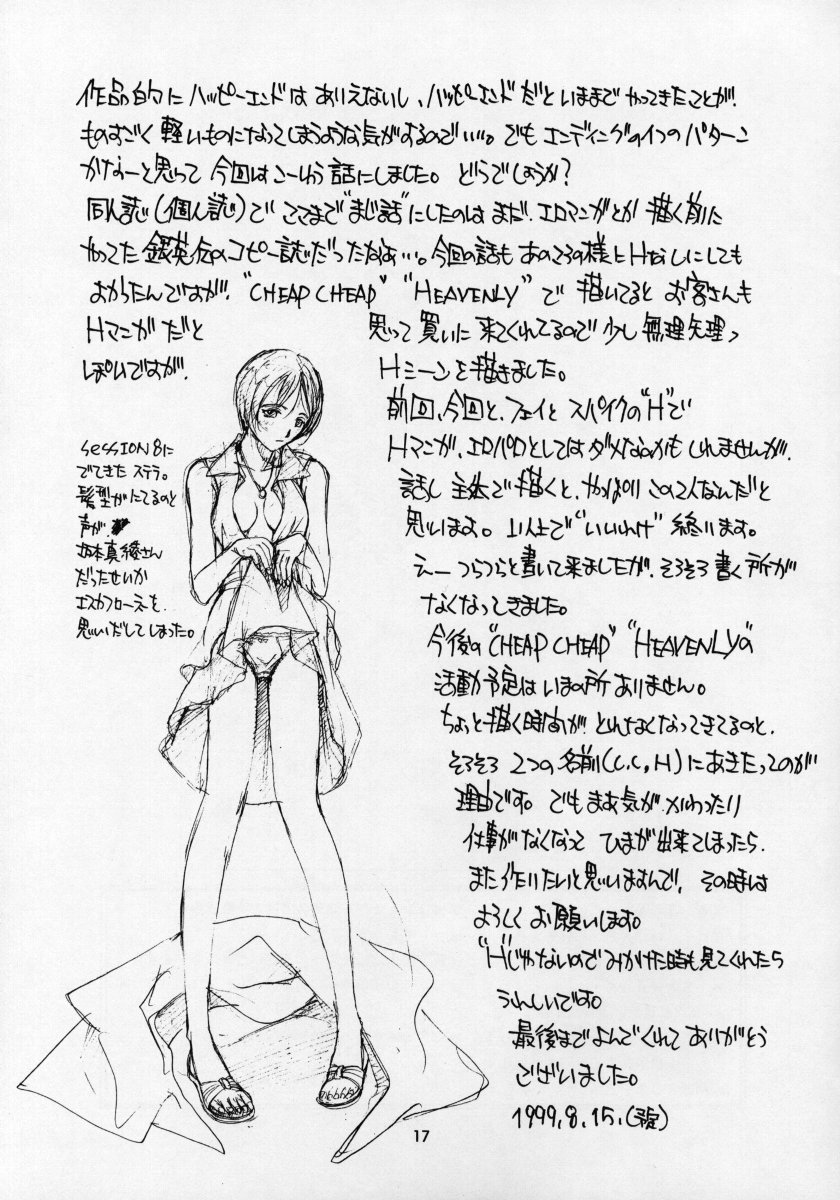 作品的にハッピーエンドはありえないし、ハッピーエンドだといままでやってきたことが、
ものすごく軽いものになってしまうような気がするので・・・。でもエンディングの1つのパターン
かなぁーと思って今回はこーいう話にしました。どうでしょうか?
同人誌(個人誌)でここまで"まじ話"にしたのはまだ、エロマンガとか描く前に
やってた銀英伝のコピー誌だったなぁ・・・。今回の話もあのころの様にHなしにしても
よかったんですが、"CHEAP CHEAP" "HEAVENLY"で描いてるとお客さんも
Hマンガだと思って買いに来てくれてるので少し無理矢理っ
ぽいですが、Hシーンを描きました。
前回、今回と、フェイとスパイクの"H"で
Hマンガ、エロパロとしてはダメなのかもしれませんが、
話し主体で描くと、やっぱりこの2人なんだと
思います。以上で"いいわけ"終ります。
えーつらつらと書いて来ましたが、そろそろ書く所が
なくなってきました。
今後の"CHEAP CHEAP" "HEAVENLY"の
活動予定はいまの所ありません。
ちょっと描く時間がとれなくなってきてるのと、
そろそろ2つの名前(C.C,H)にあきたってのが
理由です。でもまあ気がかわったり
仕事がなくなってひまが出来てしまったら、
また作りたいと思いますんで、その時は
よろしくお願いします。
"H"じゃないのでみかけた時も見てくれたら
うれしいです。
最後までよんでくれてありがとう
ございました。
1999.8.15.
SESSION8に
でてきたステラ。
髪型がにてるのと
声が
坂本真綾さん
だったせいか
エスカフローネを
思いだしてしまった。
17